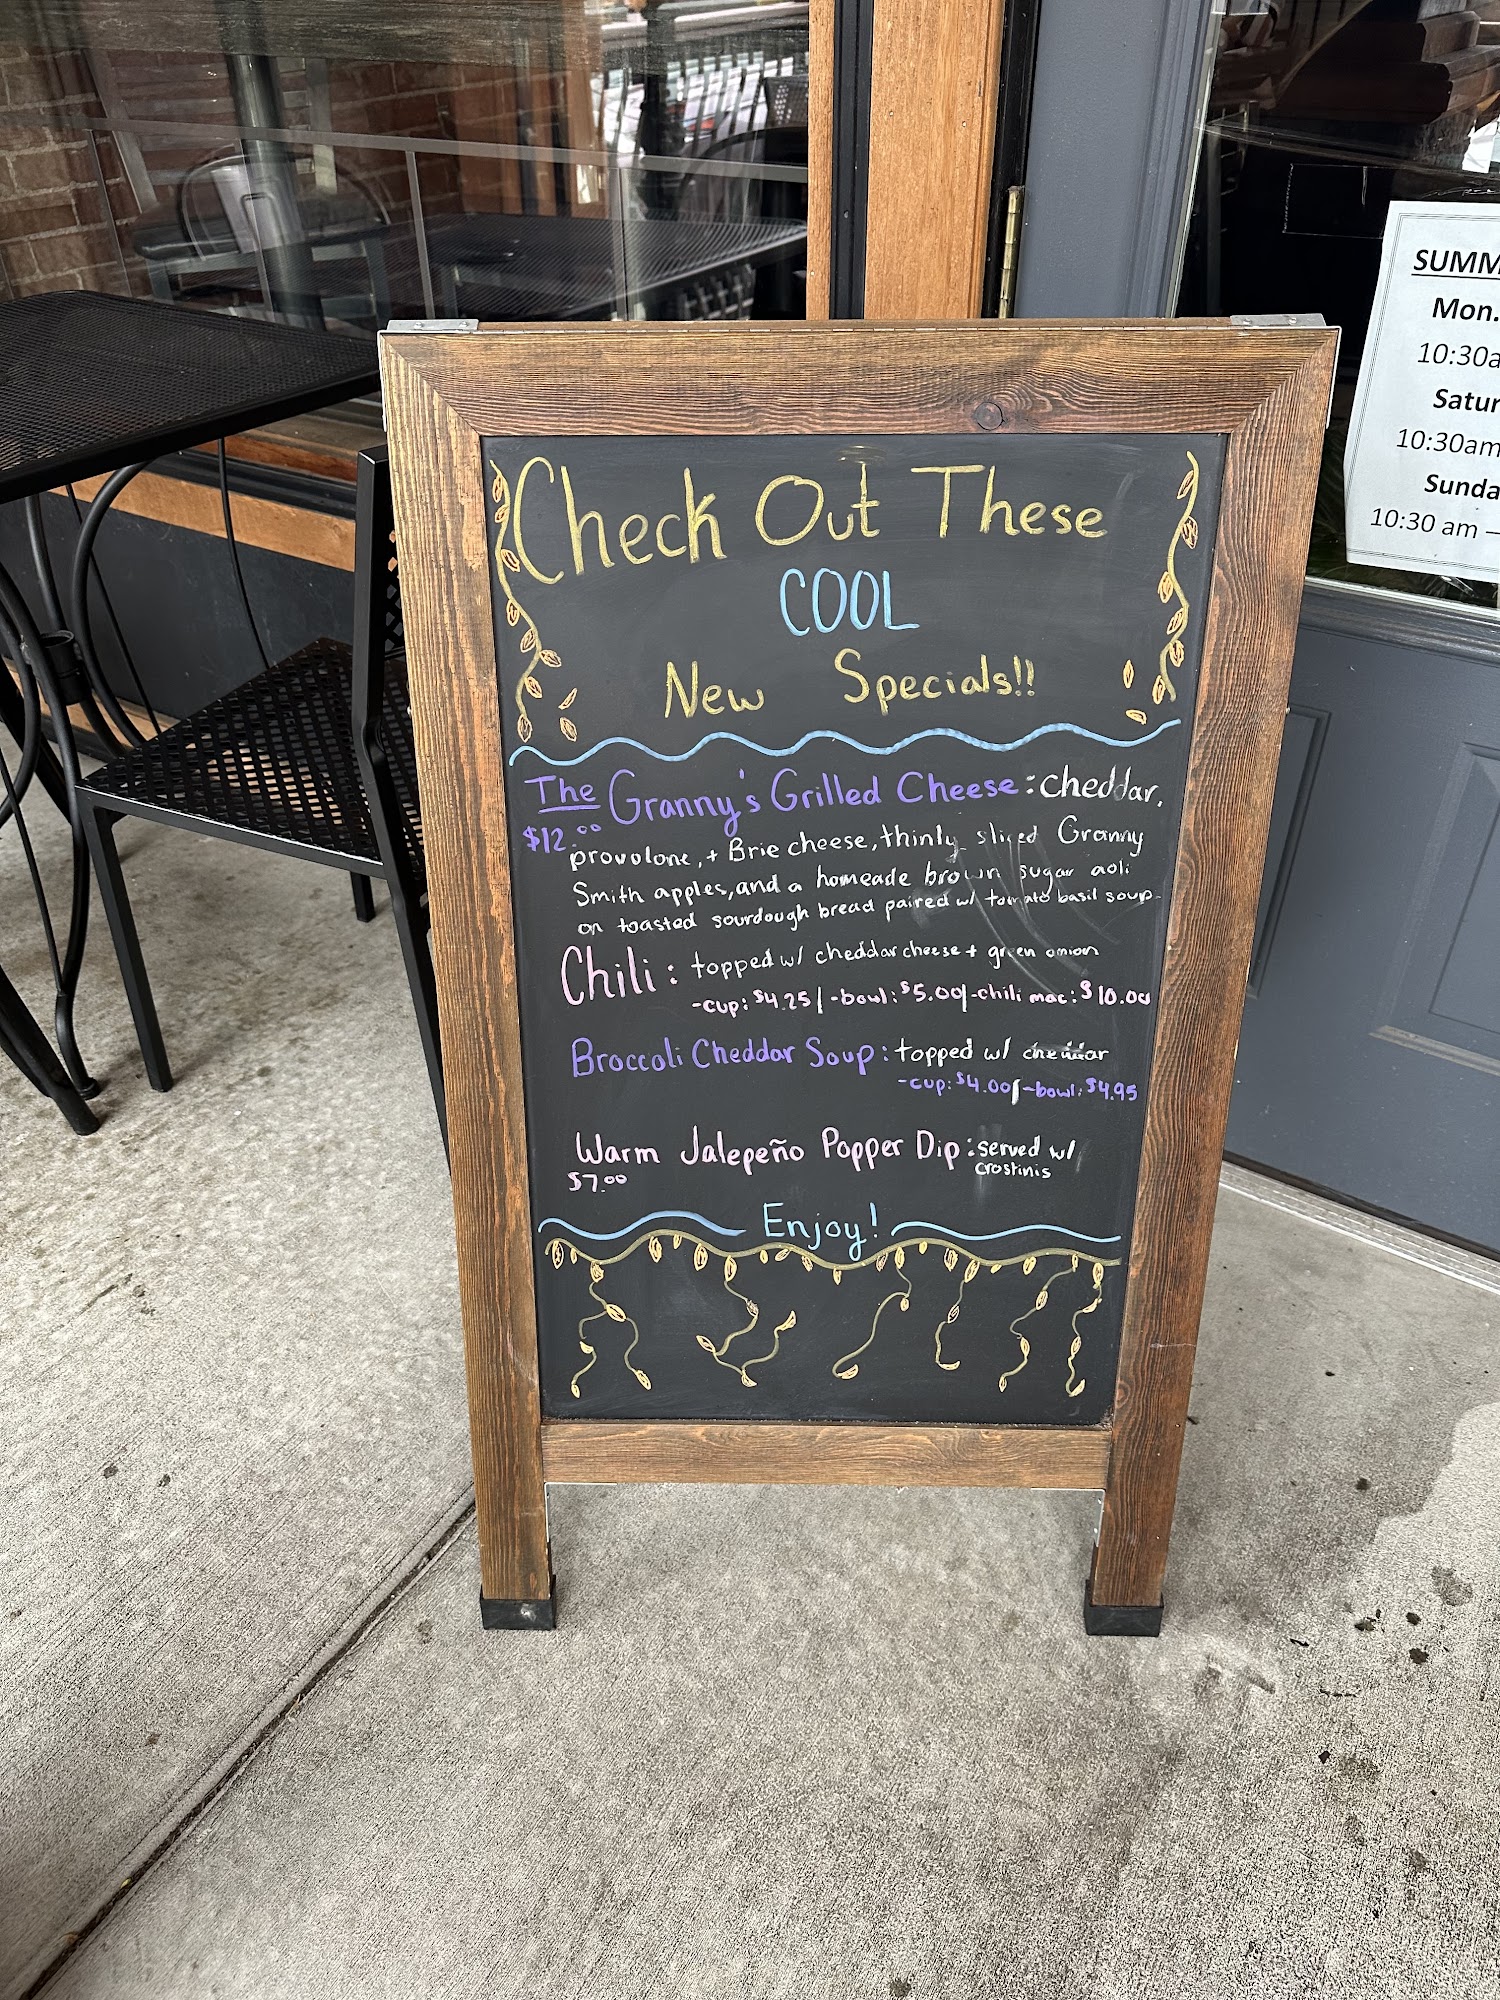 Check Out These
COOL
New Specials!!
The Granny's Grilled Cheese: cheddar,
$12.00
provolone, + Brie cheese, thinly sliced Granny
Smith apples, and a homeade brown sugar aoli
on toasted sourdough bread paired w/ tomato basil soup-
Chili: topped w/ cheddar cheese + green onion
-cup: $4.25/-bowl: $5.00/-chili mac: $10.00
Broccoli Cheddar Soup: topped w/ cheddar
-cup: $4.00/-bowl: $4.95
Warm Jalepeño Popper Dip: served w/
crostinis
$7.00
Enjoy!
SUMM
Mon.
10:30a
Satur
10:30am
Sunda
10:30 am –